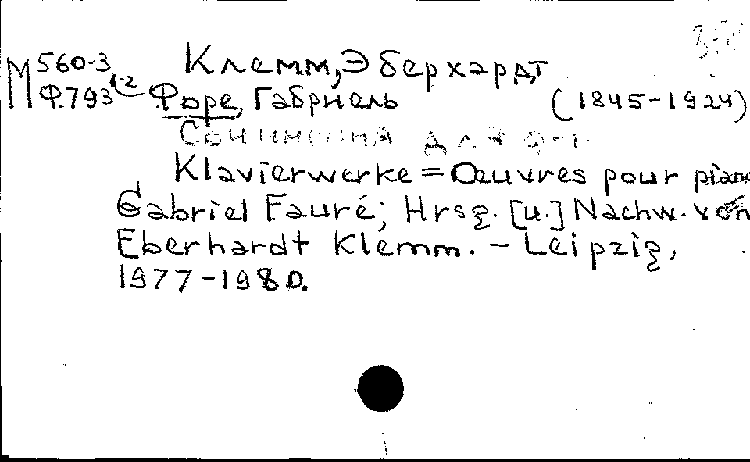 Клемм, Эберхардт
М 560-3
Ф.793 1-2
Форе, Габриель (1845-1924)
Сочинения для ф-п.
Klavierwerke = Œuvres pour piano
Gabriel Fauré; Hrsg. [u.] Nachw. von
Eberhardt Klemm. - Leipzig,
1977-1980.